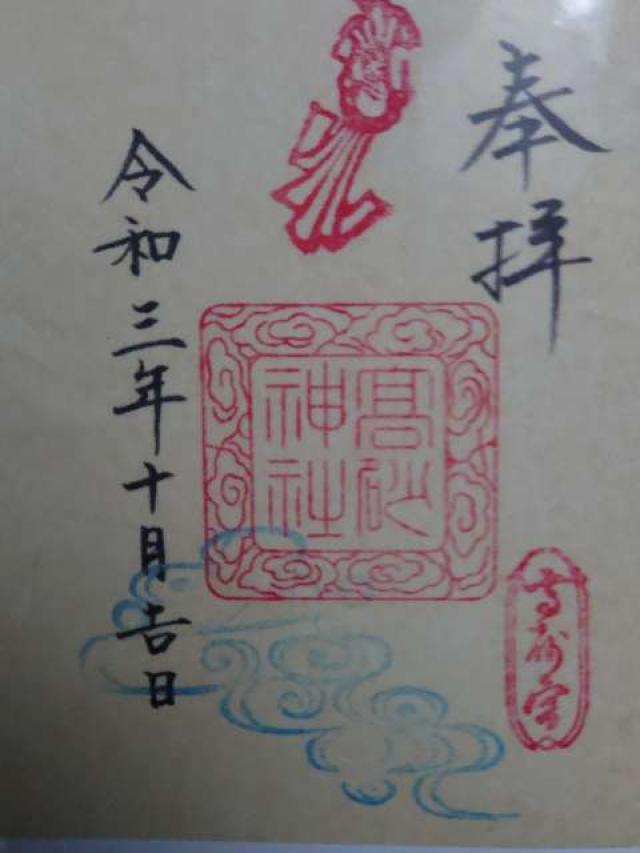 奉拝
高砂
神社
令和三年十月吉日